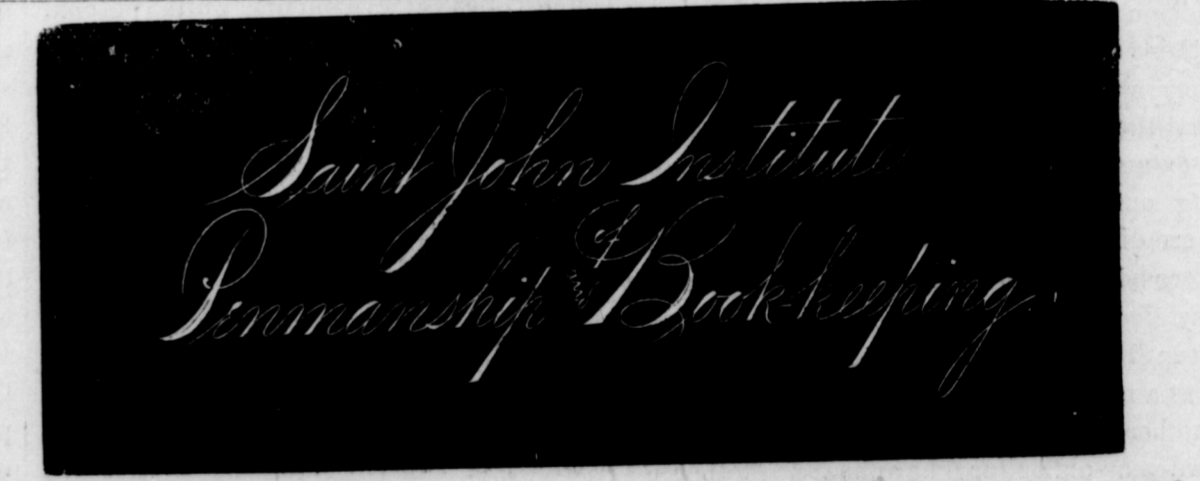 Saint John Institute
of
Penmanship and Book-keeping.